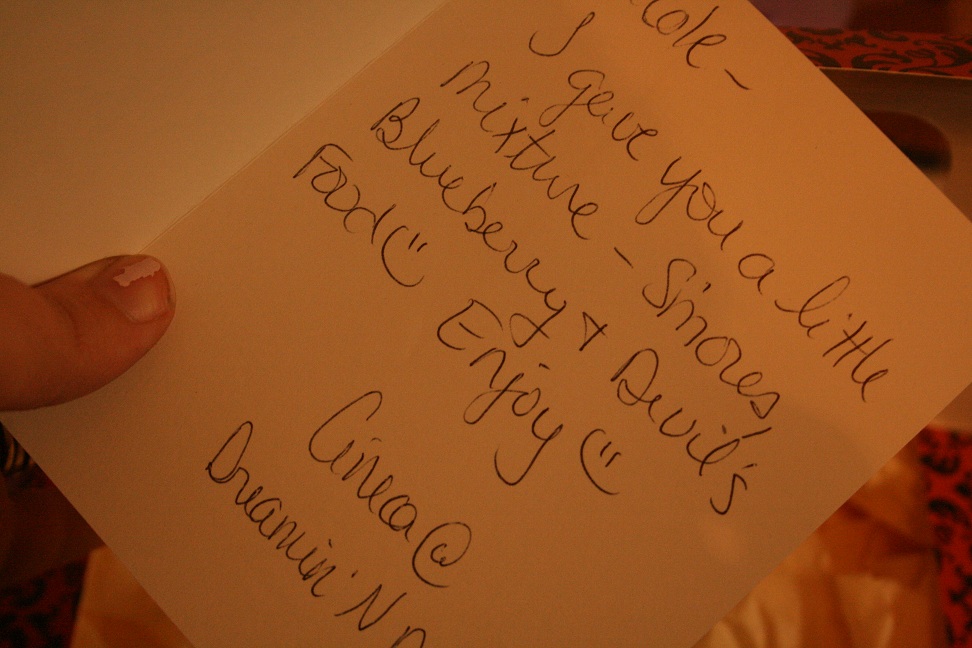 I gave you a little
mixture - S'mores,
Blueberry & Devil's
Food (¨
Enjoy (¨
@
Dreamin' N